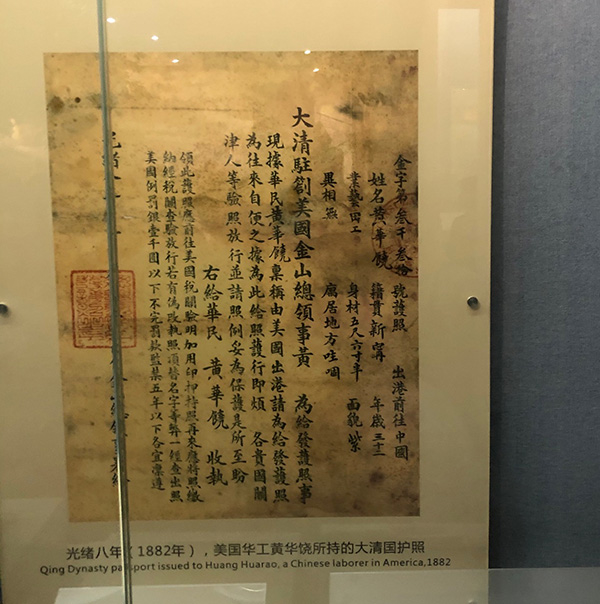 金字第叁千叁拾 號護照 出港前往中國
姓名黃華饒 籍貫新甯 年歲三十一
業藝田工 身材五尺六寸半 面貌紫
異相無 寓居地方哇啁
大清駐劄美國金山總領事黃 為給發護照事
現據華民黃華饒稟稱由美國出港請為給發護照
為往來自便之據為此給照護行即煩 各貴國關
津人等驗照放行並請照例妥為保護是所至盼
右給華民 黃華饒 收執
領此護照應前往美國稅關驗明加用印押持照再來應將照繳
納經稅關查驗放行若有偽改執照頂替名字等弊一經查出照
美國例罰銀壹千圓以下不完罰款監禁五年以下各宜禀遵
光緒
光绪八年(1882年)，美国华工黄华饶所持的大清国护照
Qing Dynasty passport issued to Huang Huarao, a Chinese laborer in America,1882